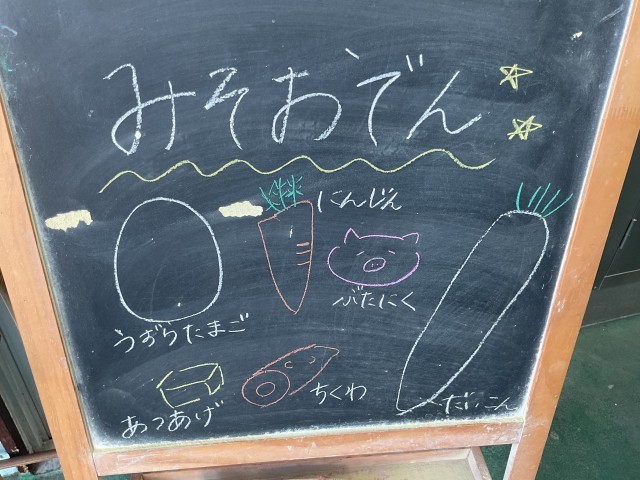 みそおでん
にんじん
ぶたにく
うずらたまご
ちくわ
だいこん
あつあげ